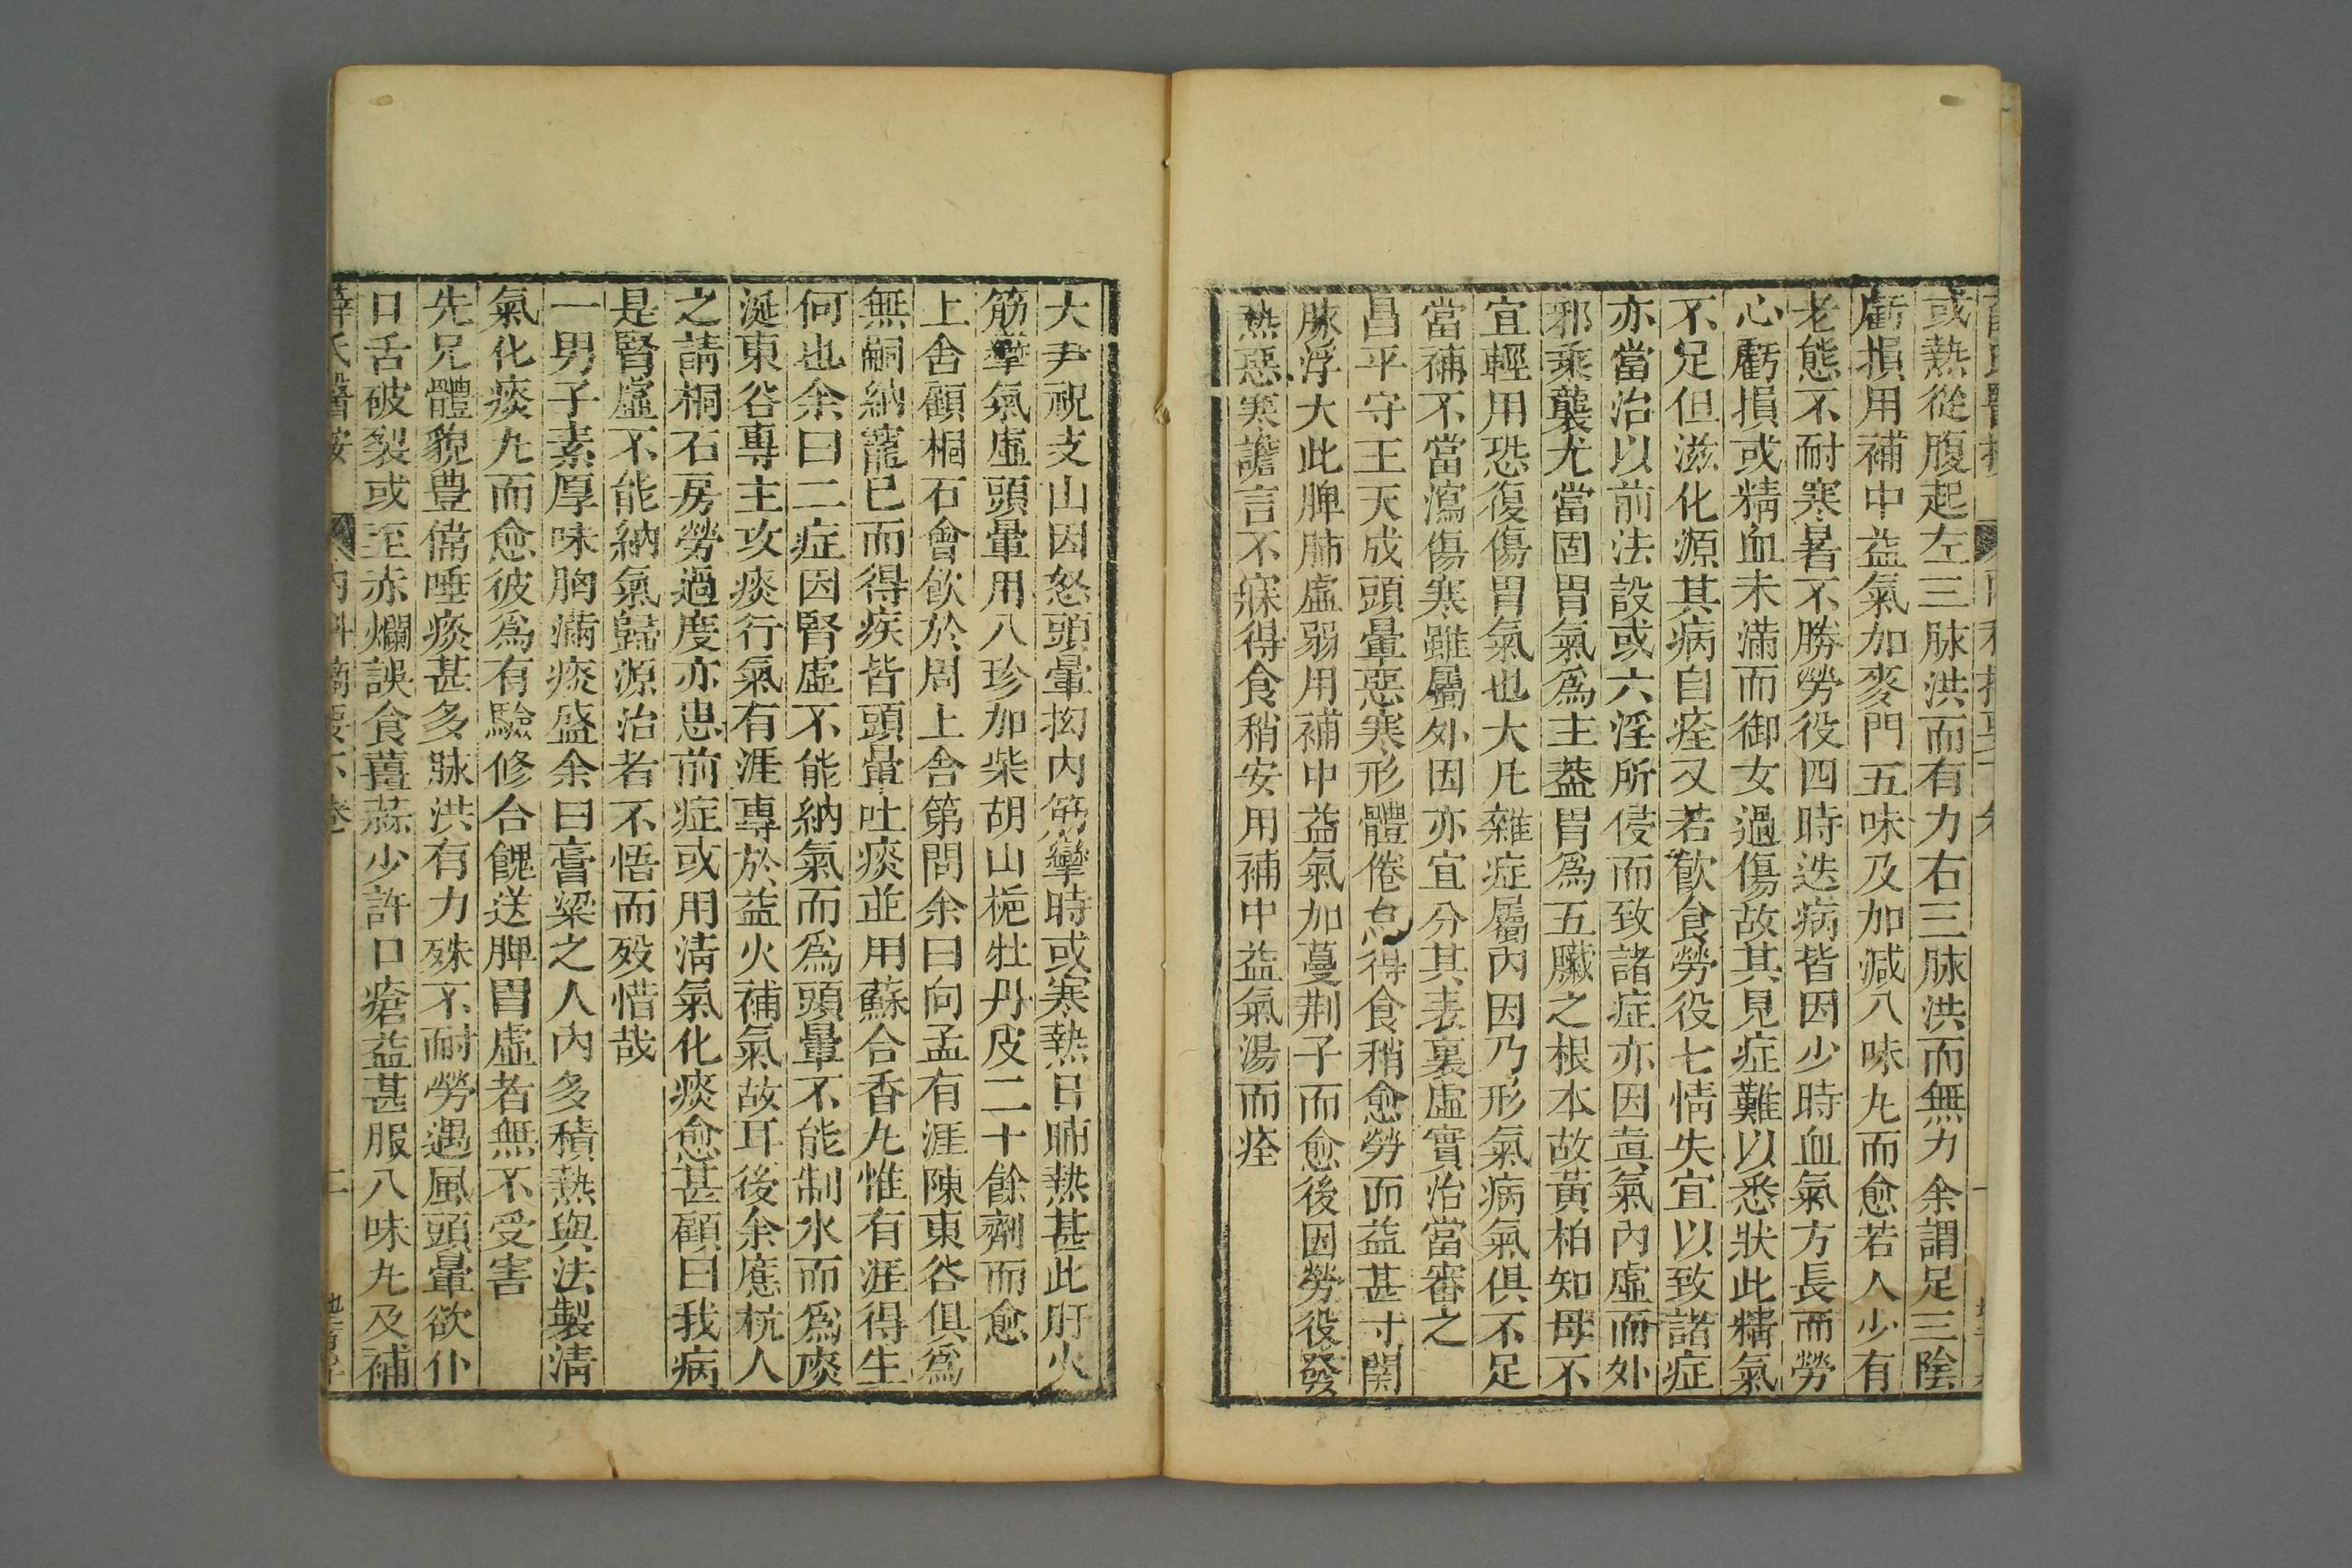 或熱從腹起左三脉洪而有力右三脉洪而無力余謂足三陰
虧損用補中益氣加麥門五味及加減八味丸而愈若人少有
老態不耐寒暑不勝勞役四時迭病皆因少時血氣方長而勞
心虧損或精血未滿而御女過傷故其見症難以悉狀此精氣
不足但滋化源其病自痊又若飲食勞役七情失宜以致諸症
亦當治以前法設或六淫所侵而致諸症亦因眞氣內虛而外
邪乘襲尤當固胃氣爲主葢胃爲五臟之根本故黃柏知母不
宜輕用恐復傷胃氣也大凡雜症屬內因乃形氣病氣俱不足
當補不當瀉傷寒雖屬外因亦宜分其表裏虛實治當審之
昌平守王天成頭暈惡寒形體倦怠得食稍愈勞而益甚寸關
脉浮大此脾肺虛弱用補中益氣加蔓荆子而愈後因勞役發
熱惡寒譫言不寐得食稍安用補中益氣湯而痊
大尹祝支山因怒頭暈拗內筋攣時或寒熱日晡熱甚此肝火
筋攣氣虛頭暈用八珍加柴胡山梔牡丹皮二十餘劑而愈
上舍顧桐石會飲於周上舍第問余曰向孟有涯陳東谷俱爲
無嗣納寵已而得疾皆頭暈吐痰並用蘇合香丸惟有涯得生
何也余曰二症因腎虛不能納氣而爲頭暈不能制水而爲痰
涎東谷專主攻痰行氣有涯專於益火補氣故耳後余應杭人
之請桐石房勞過度亦患前症或用淸氣化痰愈甚顧曰我病
是腎虛不能納氣歸源治者不悟而歿惜哉
一男子素厚味胸滿痰盛余曰膏粱之人內多積熱與法製淸
氣化痰丸而愈彼爲有驗修合餽送脾胃虛者無不受害
先兄體貌豊偉唾痰甚多脉洪有力殊不耐勞遇風頭暈欲仆
口舌破裂或至赤爛誤食薑蒜少許口瘡益甚服八味丸及補
薛氏醫按 內科摘要下卷 二